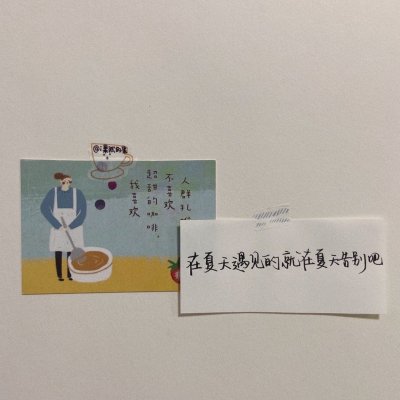 人群扎
不喜欢
超甜的咖啡，
我喜欢
在夏天遇见的就在夏天告别吧